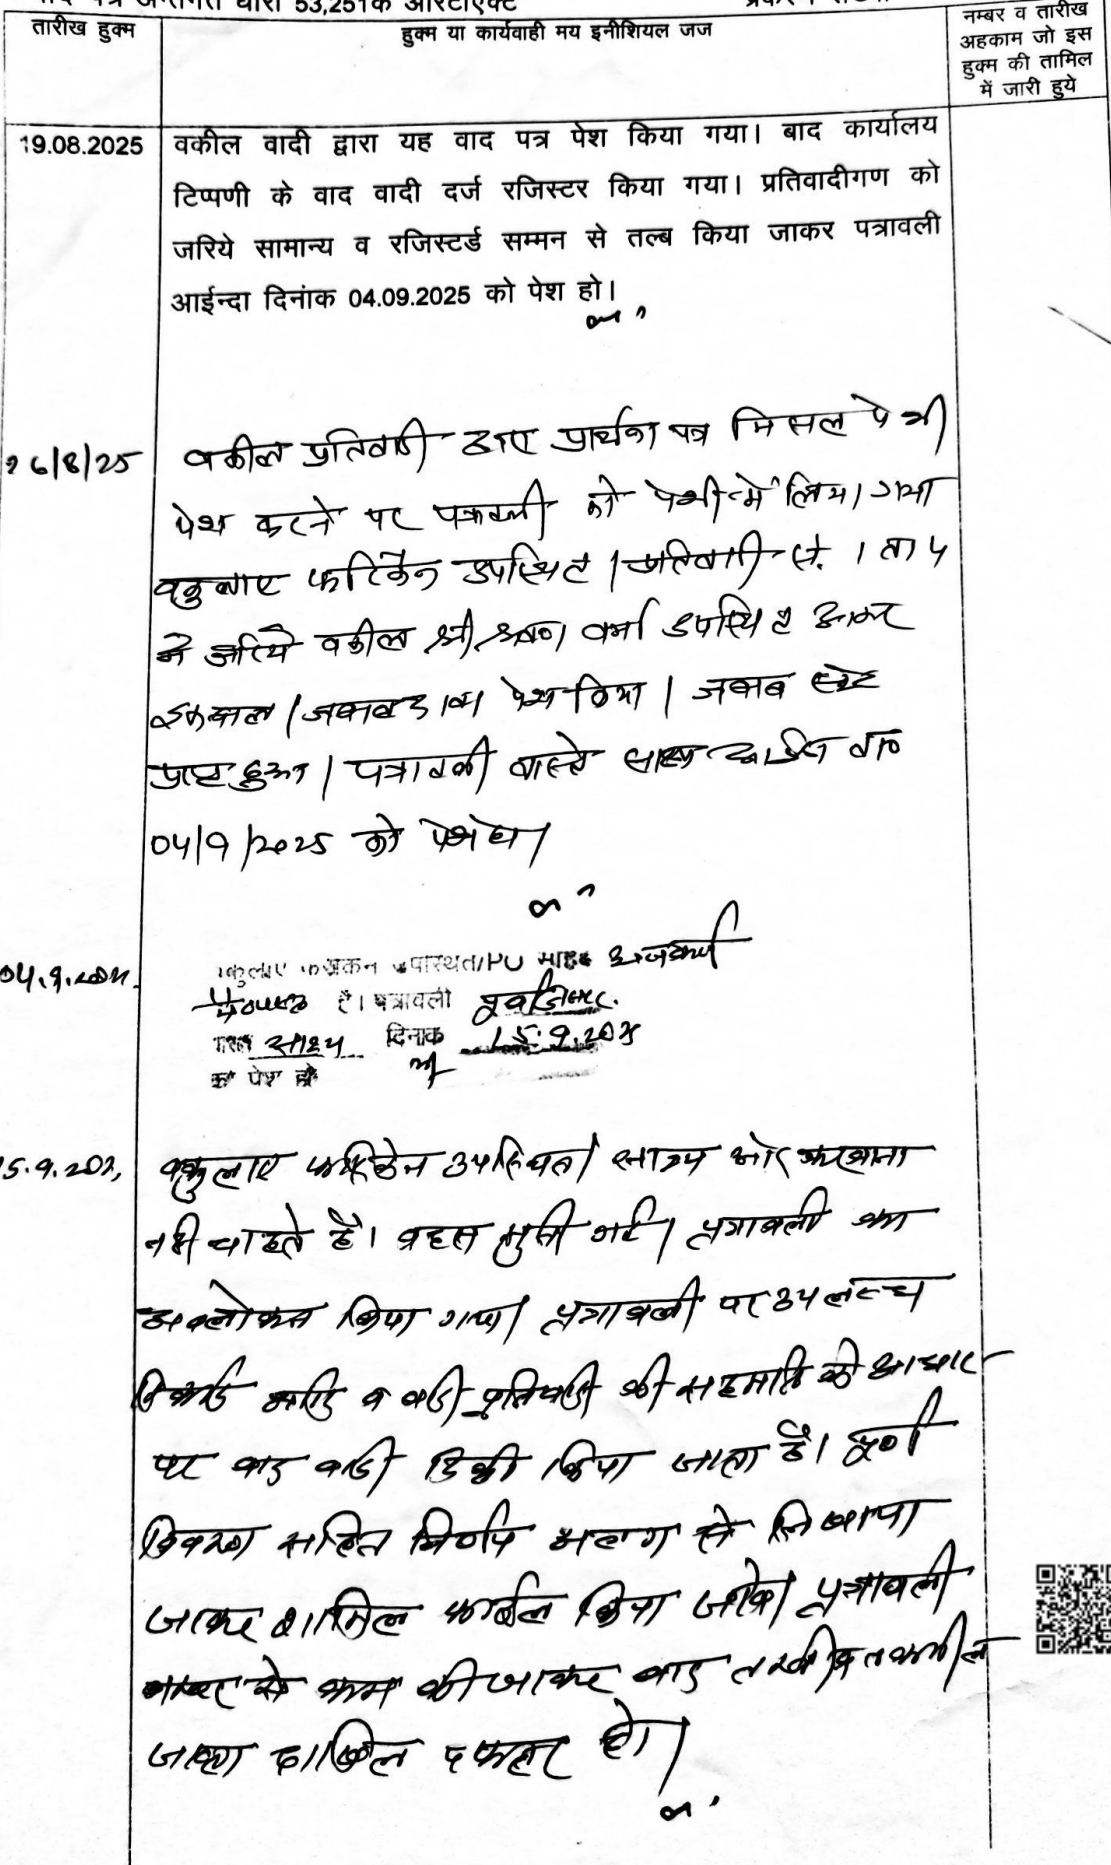 अन्तर्गत धारा 53,251क आरटीएक्ट
तारीख हुक्म
हुक्म या कार्यवाही मय इनीशियल जज
नम्बर व तारीख
अहकाम जो इस
हुक्म की तामिल
में जारी हुये
19.08.2025
वकील वादी द्वारा यह वाद पत्र पेश किया गया। बाद कार्यालय
टिप्पणी के वाद वादी दर्ज रजिस्टर किया गया। प्रतिवादीगण को
जरिये सामान्य व रजिस्टर्ड सम्मन से तल्ब किया जाकर पत्रावली
आईन्दा दिनांक 04.09.2025 को पेश हो।
26/8/25
वकील प्रतिवादी द्वारा प्रार्थना पत्र मिसल पेशी
पेश करने पर पत्रावली को पेशी में लिया गया
वकुलाए फरिकेन उपस्थित। प्रतिवादी सं. 1 ता 4
ने जरिये वकील श्री श्रवण वर्मा उपस्थित आकर
इकबाल जवाबदावा पेश किया। जवाब स्टेट
प्राप्त हुआ। पत्रावली वास्ते साक्ष्य वादी
04/9/2025 को पेश हो।
04.9.2025
वकुलाए फरिकेन उपस्थित/PO साहब
है। पत्रावली पूर्वानुसार
वास्ते साक्ष्य दिनांक 15.9.2025
को पेश हो
15.9.2025
वकुलाए फरिकेन उपस्थित। साक्ष्य और करवाना
नहीं चाहते है। बहस सुनी गई। पत्रावली का
अवलोकन किया गया। पत्रावली पर उपलब्ध
रिकॉर्ड आदि व वादी प्रतिवादी की सहमति के आधार
पर वाद वादी डिक्री किया जाता है। पूर्ण
विवरण सहित निर्णय अलग से लिखाया
जाकर शामिल फाईल किया जावे। पत्रावली
नम्बर से कम की जाकर बाद तरतीब तकमील
जाब्ता दाखिल दफ्तर हो।